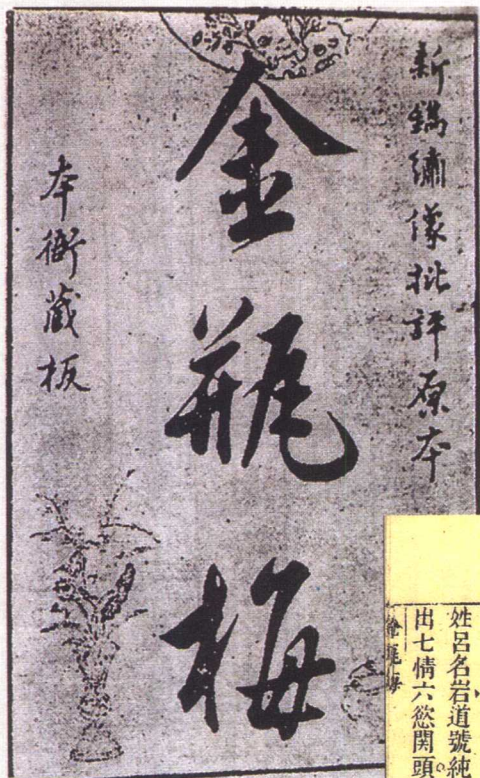 新鐫繡像批評原本
金瓶梅
本衙藏板
姓呂名岩道號純
出七情六慾関頭
金瓶梅